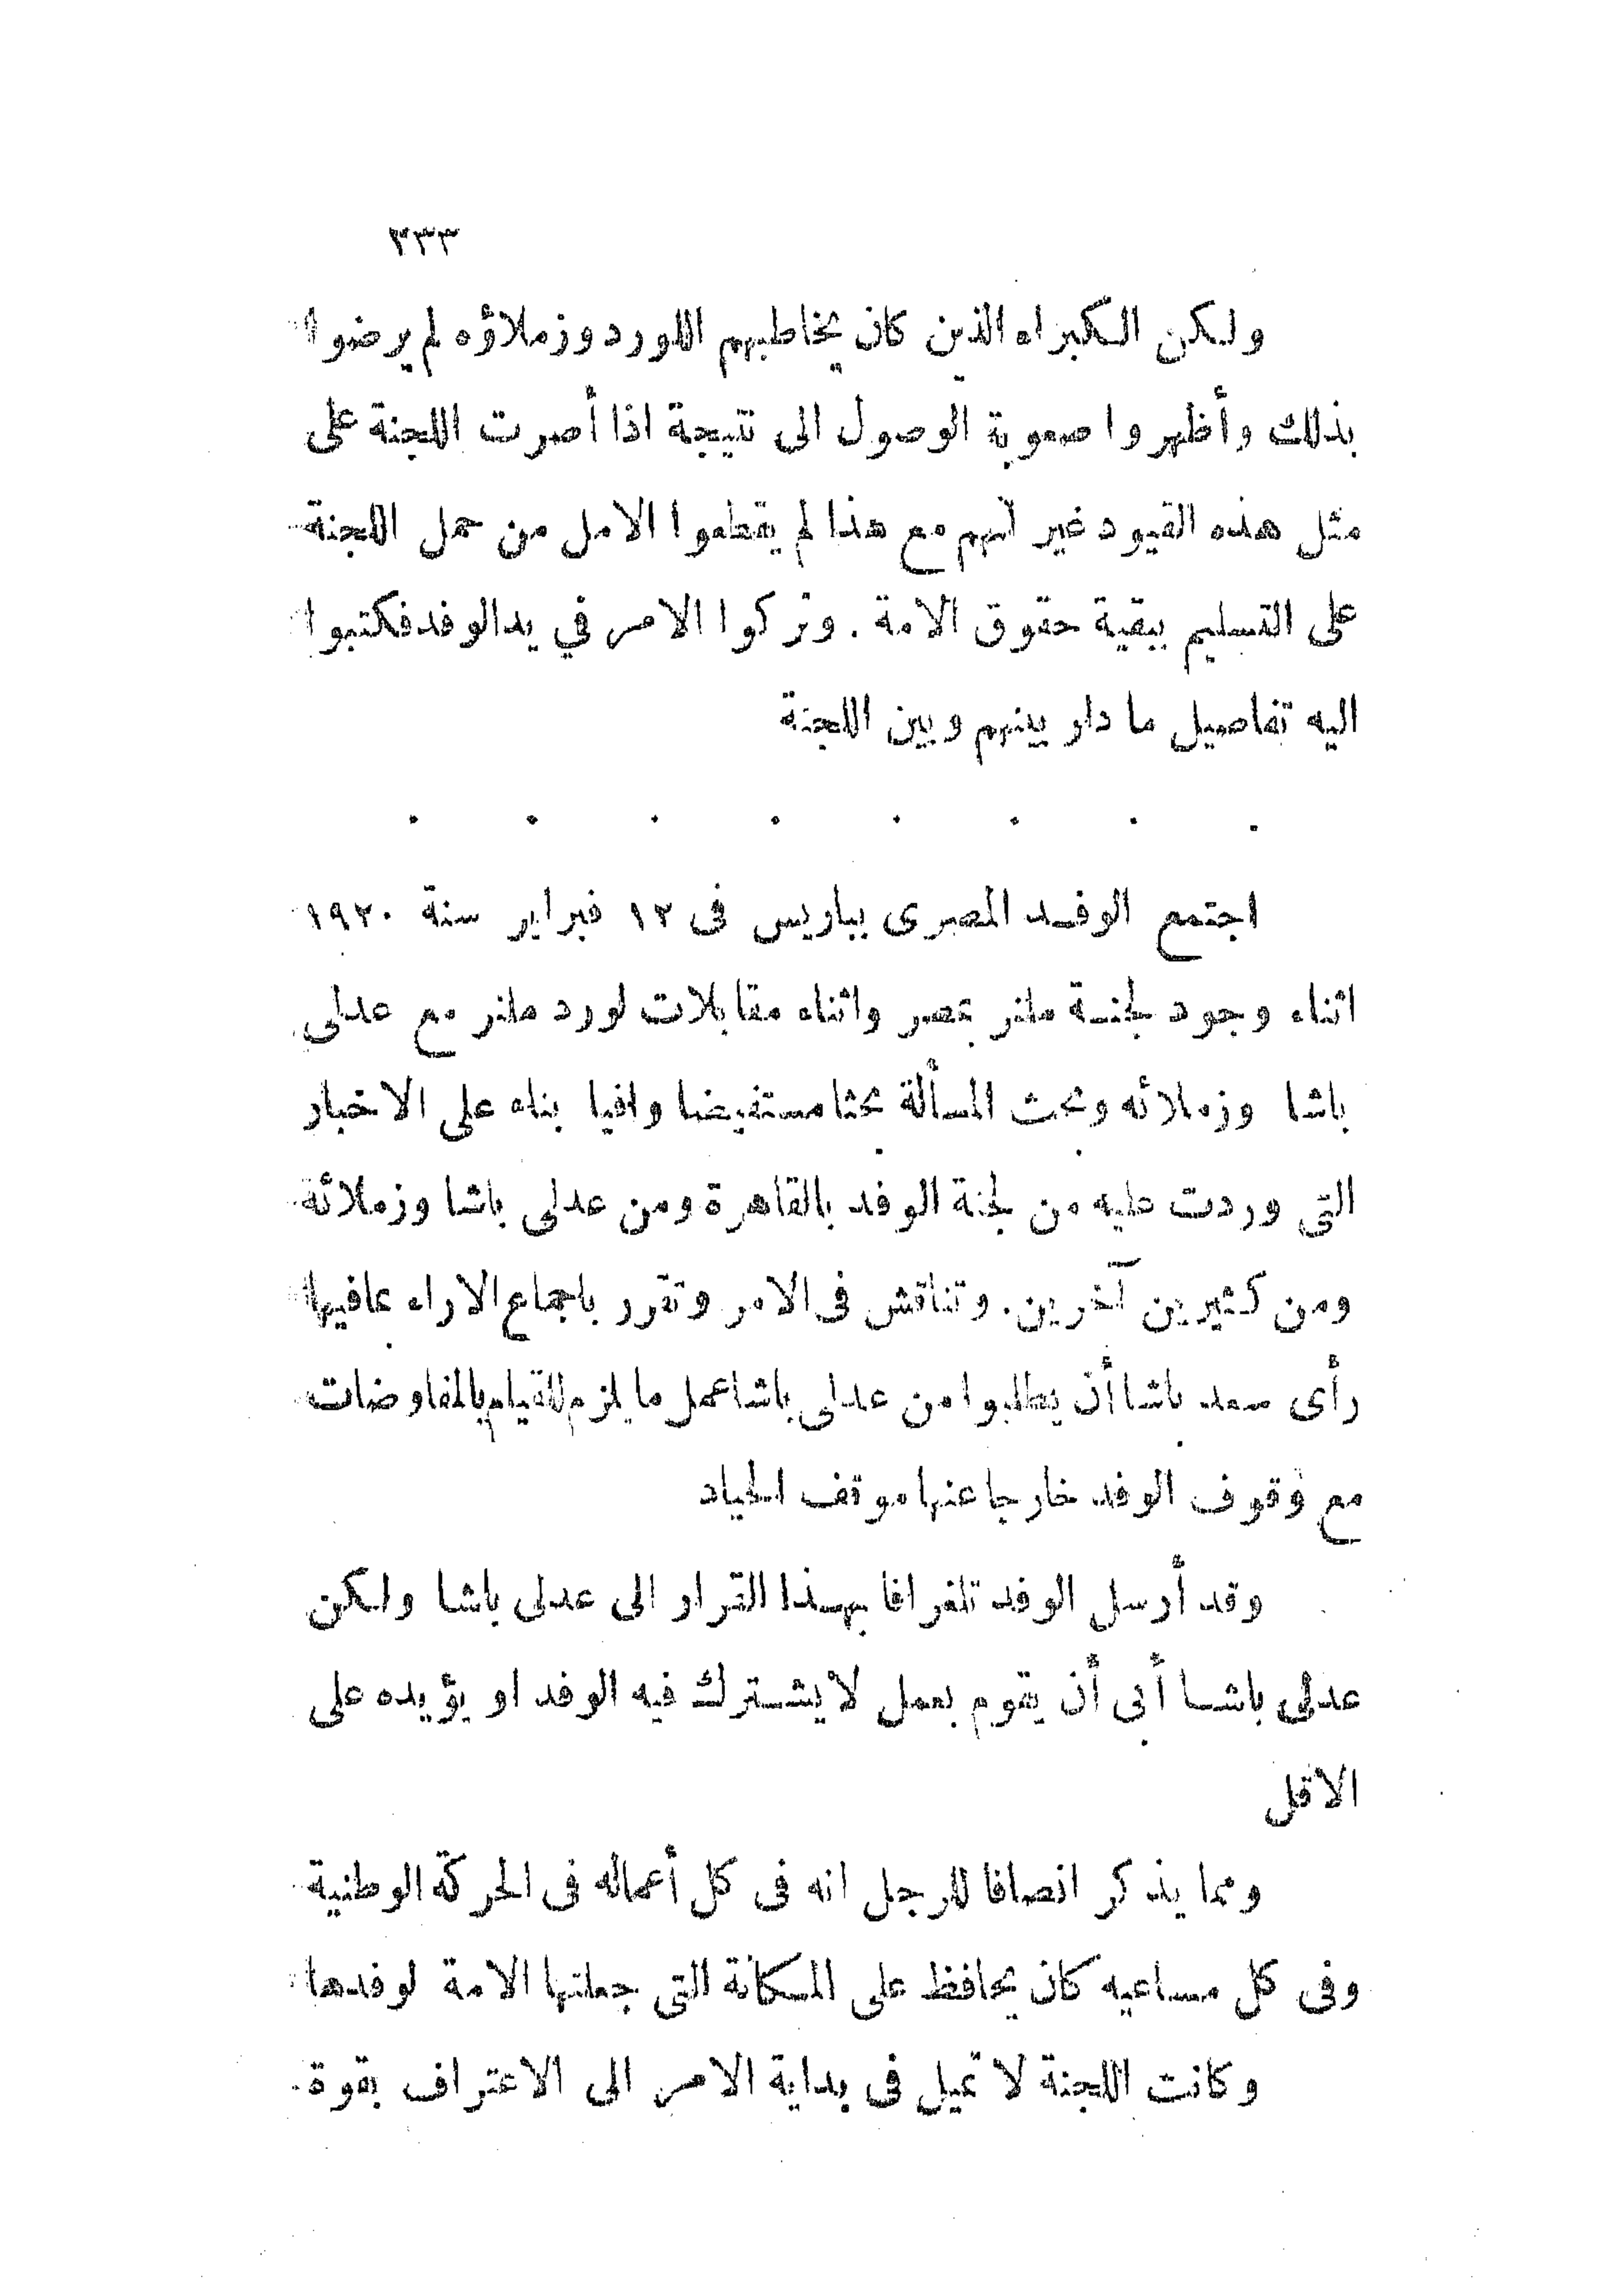 ٢٣٣
ولكن الكبراء الذين كان يخاطبهم اللورد وزملاؤه لم يرضوا
بذلك وأظهروا صعوبة الوصول الى نتيجة اذا أصرت اللجنة على
مثل هذه القيود غير انهم مع هذا لم يقطعوا الامل من حمل اللجنة
على التسليم ببقية حقوق الامة . وتركوا الامر في يد الوفد فكتبوا
اليه تفاصيل ما دار بينهم وبين اللجنة
. . . . . . . .
اجتمع الوفد المصرى بباريس فى ١٢ فبراير سنة ١٩٢٠
اثناء وجود لجنة ملنر بمصر واثناء مقابلات لورد ملنر مع عدلى
باشا وزملائه وبحث المسألة بحثا مستفيضا وافيا بناء على الاخبار
التى وردت عليه من لجنة الوفد بالقاهرة ومن عدلى باشا وزملائة
ومن كثيرين آخرين . وتناقش فى الامر وتقرر باجماع الاراء بمافيها
رأى سعد باشا أن يطلبوا من عدلى باشا عمل ما يلزم للقيام بالمفاوضات
مع وقوف الوفد خارجا عنها موقف الحياد
وقد أرسل الوفد تلغرافا بهذا القرار الى عدلى باشا ولكن
عدلى باشا أبى أن يقوم بعمل لا يشترك فيه الوفد او يؤيده على
الاقل
ومما يذكر انصافا للرجل انه فى كل أعماله فى الحركة الوطنية
وفى كل مساعيه كان يحافظ على المكانة التى جعلتها الامة لوفدها
وكانت اللجنة لا تميل فى بداية الامر الى الاعتراف بقوة